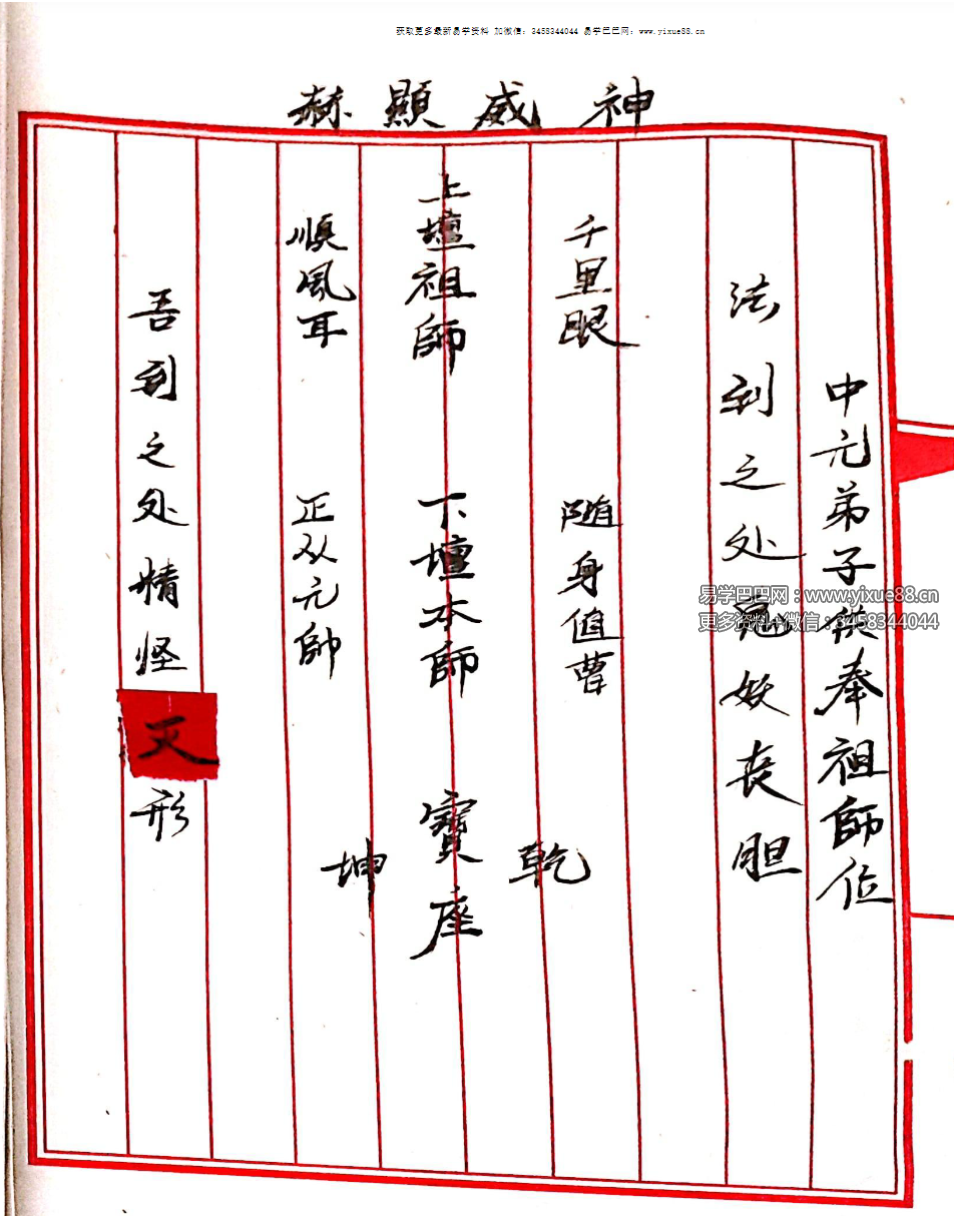 获取更多最新易学资料 加微信：3458344044 易学巴巴网：www.yixue88.cn
神威顯赫
中元弟子供奉祖師位
法到之处妖丧胆
千里眼 随身值曹
乾
上壇祖師 下壇本師 寶座
順風耳 正从元帥
坤
吾到之处精怪灭形
易学巴巴网：www.yixue88.cn
更多资料+微信：3458344044